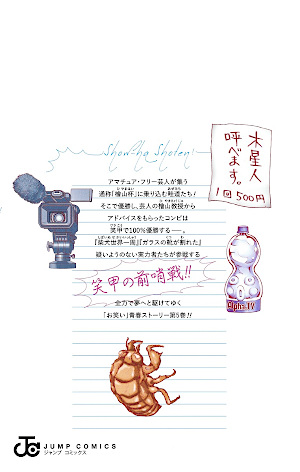 Show-ha Shoten!
木星人
呼べます。
1回500円
アマチュア・フリー芸人が集う
通称「檜山杯」に乗り込む畦道たち!
そこで優勝し、芸人の檜山教授から
アドバイスをもらったコンビは
笑甲で100%優勝する―。
『柴犬世界一周』『ガラスの靴が割れた』
疑いようのない実力者たちが参戦する
笑甲の前哨戦!!
全力で夢へと駆けてゆく
「お笑い」青春ストーリー第5巻!!
Alpha TV
JUMP COMICS
ジャンプ コミックス